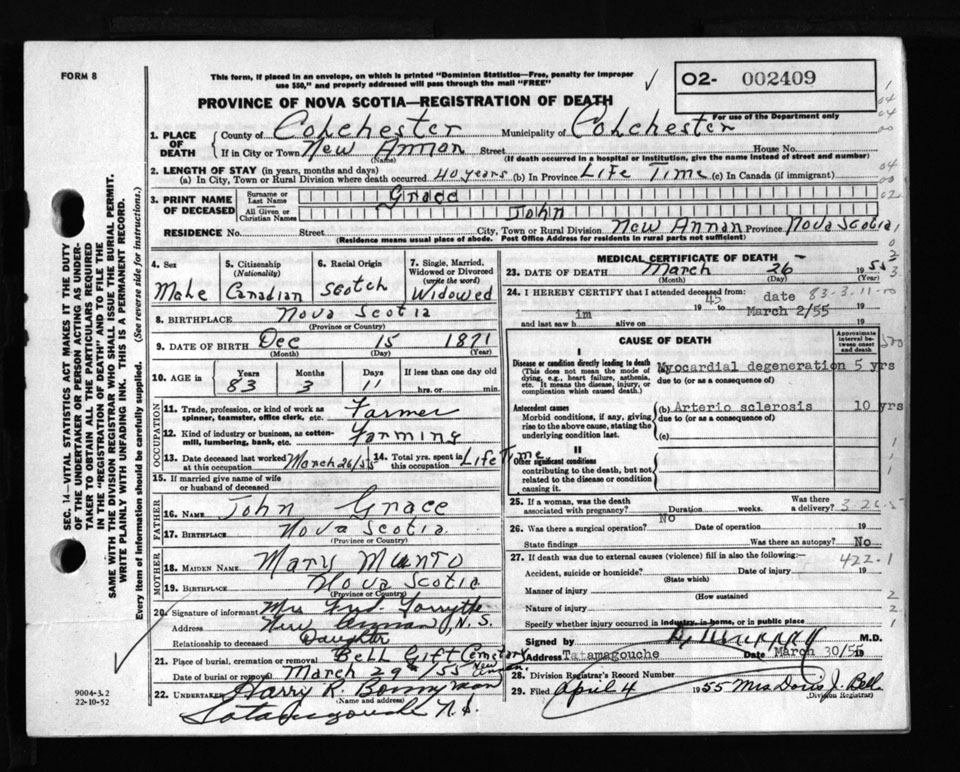 FORM 8
This form, if placed in an envelope, on which is printed "Dominion Statistics—Free, penalty for improper
use $50," and properly addressed will pass through the mail "FREE"
02- 002409
For use of the Department only
PROVINCE OF NOVA SCOTIA—REGISTRATION OF DEATH
1. PLACE OF DEATH
County of Colchester Municipality of Colchester
If in City or Town New Annan Street House No.
(Name) (If death occurred in a hospital or institution, give the name instead of street and number)
2. LENGTH OF STAY (in years, months and days)
(a) In City, Town or Rural Division where death occurred 40 years (b) In Province Life Time (c) In Canada (if immigrant)
3. PRINT NAME OF DECEASED
Surname or Last Name Grace
All Given or Christian Names John
RESIDENCE No. Street City, Town or Rural Division New Annan Province Nova Scotia
(Residence means usual place of abode. Post Office Address for residents in rural parts not sufficient)
4. Sex
Male
5. Citizenship (Nationality)
Canadian
6. Racial Origin
Scotch
7. Single, Married, Widowed or Divorced (write the word)
Widowed
8. BIRTHPLACE Nova Scotia
(Province or Country)
9. DATE OF BIRTH Dec 15 1871
(Month) (Day) (Year)
10. AGE in Years Months Days If less than one day old
83 3 11 hrs. or min.
OCCUPATION
11. Trade, profession, or kind of work as spinner, teamster, office clerk, etc. Farmer
12. Kind of industry or business, as cotton-mill, lumbering, bank, etc. Farming
13. Date deceased last worked at this occupation March 26/55
14. Total yrs. spent in this occupation Life Time
15. If married give name of wife or husband of deceased
FATHER
16. NAME John Grace
17. BIRTHPLACE Nova Scotia
(Province or Country)
MOTHER
18. MAIDEN NAME Mary Munro
19. BIRTHPLACE Nova Scotia
(Province or Country)
20. Signature of informant Mrs Fred Forsythe
Address New Annan N.S.
Relationship to deceased Daughter
21. Place of burial, cremation or removal Bell Gift Cemetary
New Annan
Date of burial or removal March 29th/55
22. UNDERTAKER Harry R. Bonnyman
(Name and address)
Tatamagouche N.S.
MEDICAL CERTIFICATE OF DEATH
23. DATE OF DEATH March 26 1955
(Month) (Day) (Year)
24. I HEREBY CERTIFY that I attended deceased from:
45 date 83-3-11-00
19 to March 2/55 19
and last saw him alive on 19
CAUSE OF DEATH
Approximate interval between onset and death
I
Disease or condition directly leading to death
(This does not mean the mode of dying, e.g., heart failure, asthenia, etc. It means the disease, injury, or complication which caused death.)
Myocardial degeneration 5 yrs
due to (or as a consequence of)
Antecedent causes
Morbid conditions, if any, giving rise to the above cause, stating the underlying condition last.
(b) Arterio sclerosis 10 yrs
due to (or as a consequence of)
(c)
II
Other significant conditions
contributing to the death, but not related to the disease or condition causing it.
25. If a woman, was the death associated with pregnancy? Duration weeks. Was there a delivery?
3-26-5
26. Was there a surgical operation? No Date of operation 19
State findings Was there an autopsy? No
27. If death was due to external causes (violence) fill in also the following:—
422.1
Accident, suicide or homicide? Date of injury 19
(State which)
Manner of injury
(How sustained)
Nature of injury
Specify whether injury occurred in industry, in home, or in public place
Signed by D Murray M.D.
Address Tatamagouche Date March 30/55 19
28. Division Registrar's Record Number
29. Filed April 4 1955 Mrs. Doris J. Bell
(Division Registrar)
SEC. 14—VITAL STATISTICS ACT MAKES IT THE DUTY
OF THE UNDERTAKER OR PERSON ACTING AS UNDER-
TAKER TO OBTAIN ALL THE PARTICULARS REQUIRED
IN THE "REGISTRATION OF DEATH" AND TO FILE THE
SAME WITH THE DIVISION REGISTRAR WHO SHALL ISSUE THE BURIAL PERMIT.
WRITE PLAINLY WITH UNFADING INK. THIS IS A PERMANENT RECORD.
Every item of information should be carefully supplied. (See reverse side for instructions.)
9004-3.2
22-10-52